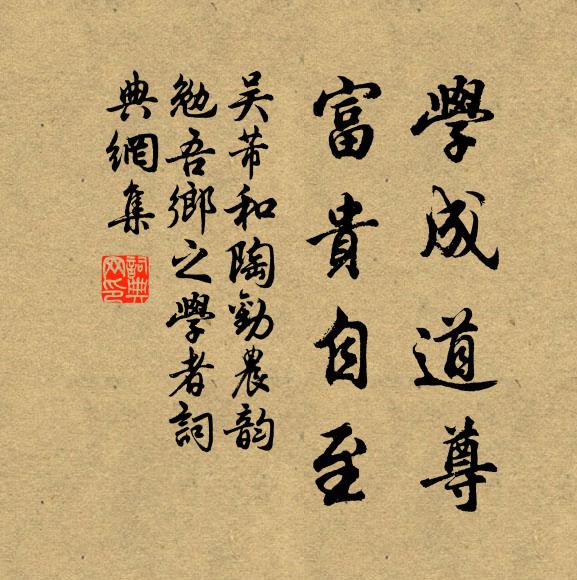 學成道尊
富貴自至
吴芾和陶勸農韵
勉吾鄉之學者詞
典網集
詞典
网印